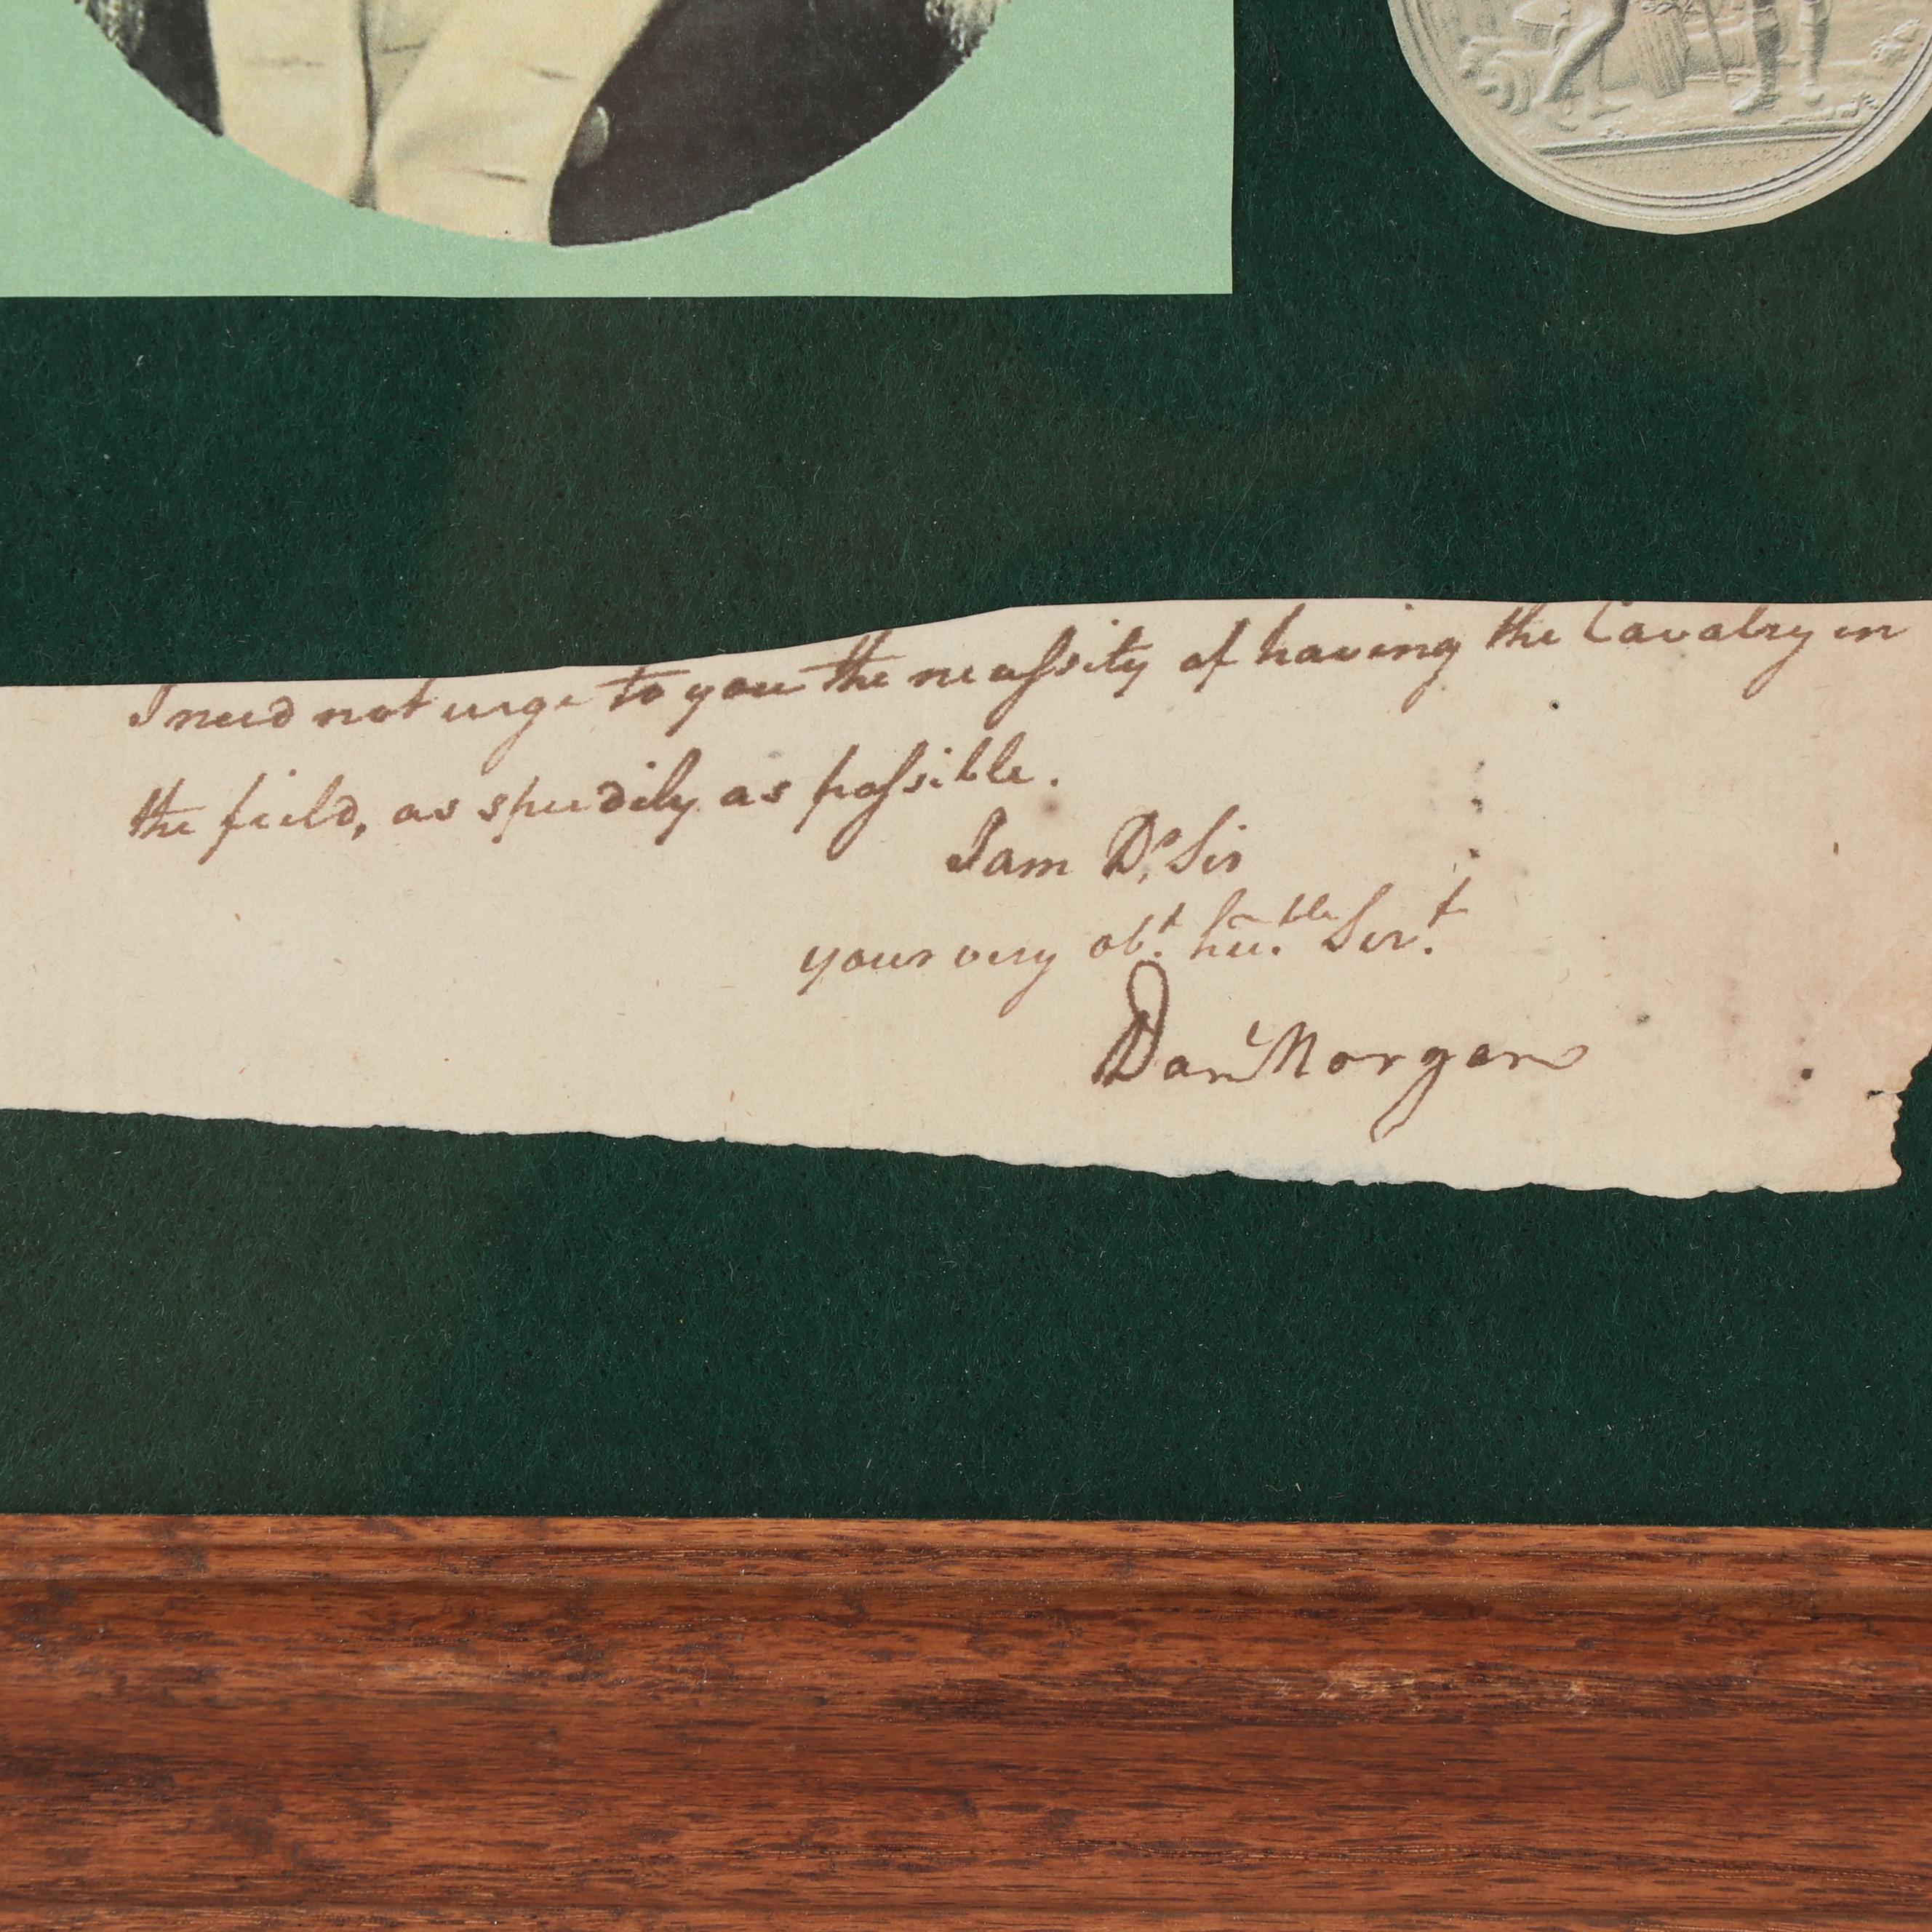 I need not urge to you the necessity of having the Cavalry in
the field, as speedily as possible.
I am Dr. Sir
your very obt. hu.ble Servt.
Danl Morgan